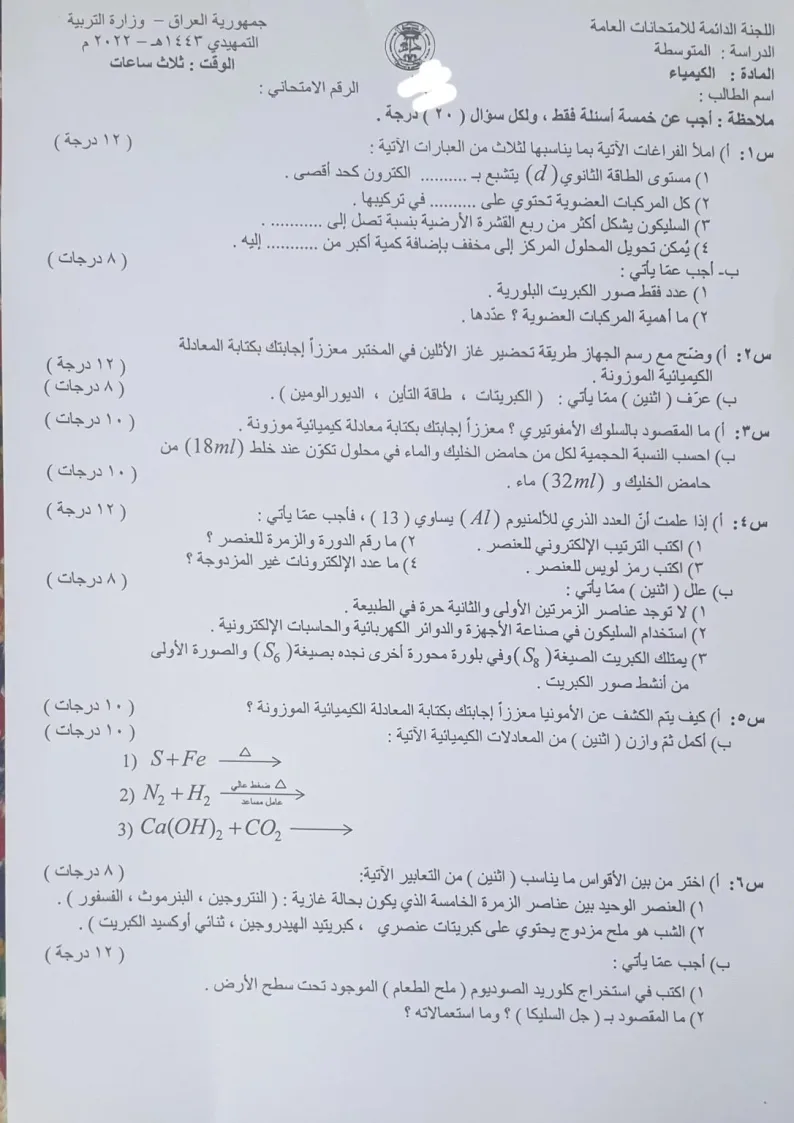 اللجنة الدائمة للامتحانات العامة
جمهورية العراق – وزارة التربية
الدراسة : المتوسطة
التمهيدي ١٤٤٣هـ – ٢٠٢٢ م
المادة : الكيمياء
الوقت : ثلاث ساعات
اسم الطالب :
الرقم الامتحاني :
ملاحظة : أجب عن خمسة أسئلة فقط ، ولكل سؤال ( ٢٠ ) درجة .
س١: أ) املأ الفراغات الآتية بما يناسبها لثلاث من العبارات الآتية : ( ١٢ درجة )
١) مستوى الطاقة الثانوي (d) يتشبع بـ .......... الكترون كحد أقصى .
٢) كل المركبات العضوية تحتوي على .......... في تركيبها .
٣) السليكون يشكل أكثر من ربع القشرة الأرضية بنسبة تصل إلى ........... .
٤) يُمكن تحويل المحلول المركز إلى مخفف بإضافة كمية أكبر من ........... إليه .
ب- أجب عمّا يأتي : ( ٨ درجات )
١) عدد فقط صور الكبريت البلورية .
٢) ما أهمية المركبات العضوية ؟ عدّدها .
س٢: أ) وضّح مع رسم الجهاز طريقة تحضير غاز الأثلين في المختبر معززاً إجابتك بكتابة المعادلة
الكيميائية الموزونة . ( ١٢ درجة )
ب) عرّف ( اثنين ) ممّا يأتي : ( الكبريتات ، طاقة التأين ، الديورالومين ) . ( ٨ درجات )
س٣: أ) ما المقصود بالسلوك الأمفوتيري ؟ معززاً إجابتك بكتابة معادلة كيميائية موزونة . ( ١٠ درجات )
ب) احسب النسبة الحجمية لكل من حامض الخليك والماء في محلول تكوّن عند خلط (18ml) من
حامض الخليك و (32ml) ماء . ( ١٠ درجات )
س٤: أ) إذا علمت أنّ العدد الذري للألمنيوم (Al) يساوي ( 13 ) ، فأجب عمّا يأتي : ( ١٢ درجة )
١) اكتب الترتيب الإلكتروني للعنصر . ٢) ما رقم الدورة والزمرة للعنصر ؟
٣) اكتب رمز لويس للعنصر . ٤) ما عدد الإلكترونات غير المزدوجة ؟
ب) علل ( اثنين ) ممّا يأتي : ( ٨ درجات )
١) لا توجد عناصر الزمرتين الأولى والثانية حرة في الطبيعة .
٢) استخدام السليكون في صناعة الأجهزة والدوائر الكهربائية والحاسبات الإلكترونية .
٣) يمتلك الكبريت الصيغة (S₈) وفي بلورة محورة أخرى نجده بصيغة (S₆) والصورة الأولى
من أنشط صور الكبريت .
س٥: أ) كيف يتم الكشف عن الأمونيا معززاً إجابتك بكتابة المعادلة الكيميائية الموزونة ؟ ( ١٠ درجات )
ب) أكمل ثمّ وازن ( اثنين ) من المعادلات الكيميائية الآتية : ( ١٠ درجات )
1) S+Fe —Δ→
2) N₂+H₂ —Δ ضغط عالي / عامل مساعد→
3) Ca(OH)₂+CO₂ ⟶
س٦: أ) اختر من بين الأقواس ما يناسب ( اثنين ) من التعابير الآتية: ( ٨ درجات )
١) العنصر الوحيد بين عناصر الزمرة الخامسة الذي يكون بحالة غازية : ( النتروجين ، البنرموث ، الفسفور ) .
٢) الشب هو ملح مزدوج يحتوي على كبريتات عنصري ، كبريتيد الهيدروجين ، ثنائي أوكسيد الكبريت ) .
ب) أجب عمّا يأتي : ( ١٢ درجة )
١) اكتب في استخراج كلوريد الصوديوم ( ملح الطعام ) الموجود تحت سطح الأرض .
٢) ما المقصود بـ ( جل السليكا ) ؟ وما استعمالاته ؟